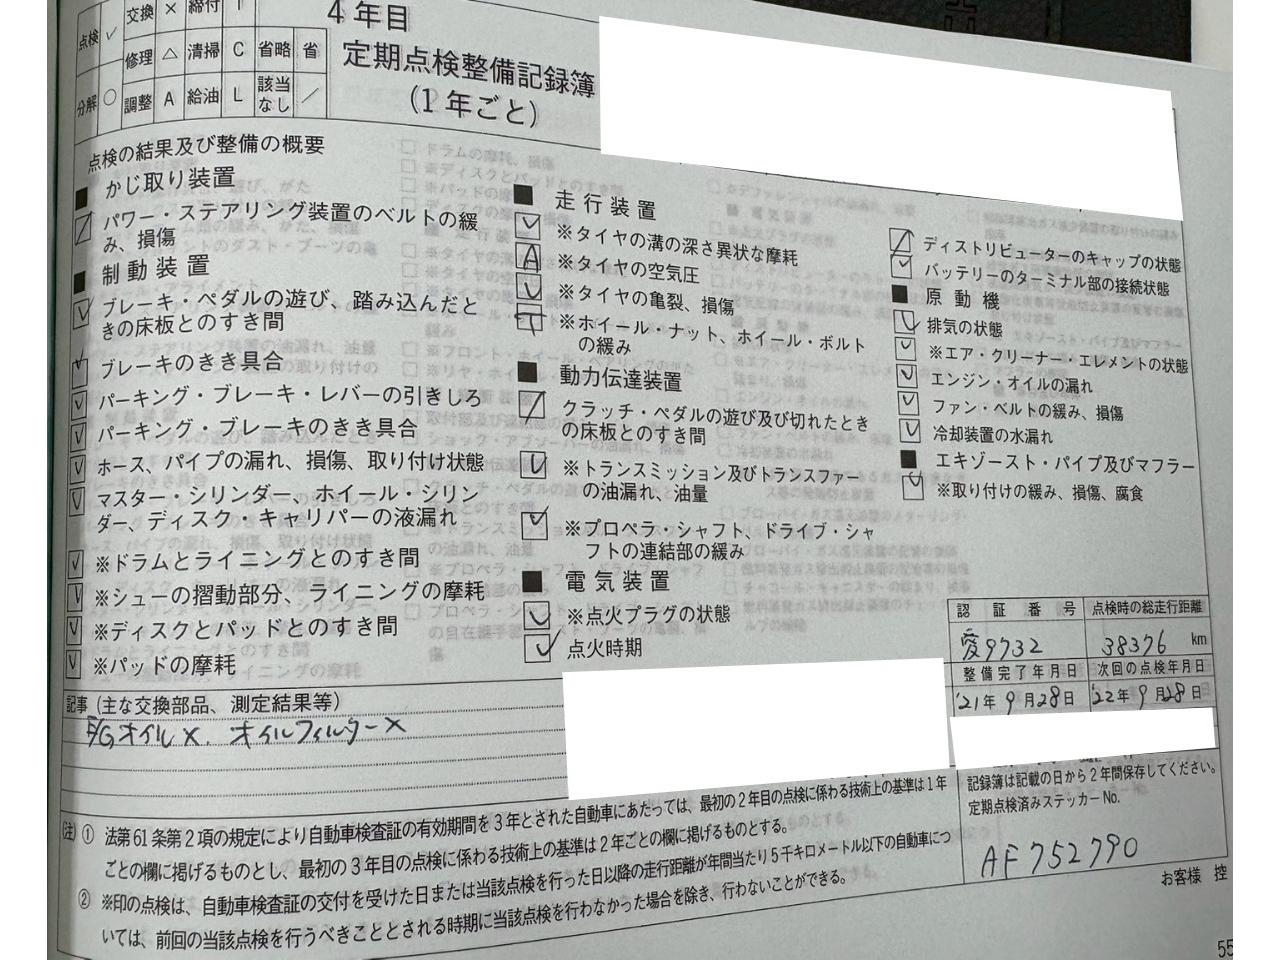 4年目
定期点検整備記録簿
(1年ごと)
点検 ✓ 交換 × 締付 T
修理 △ 清掃 C 省略 省
分解 ○ 調整 A 給油 L 該当なし ／
点検の結果及び整備の概要
■ かじ取り装置
パワー・ステアリング装置のベルトの緩
み、損傷
■ 制動装置
ブレーキ・ペダルの遊び、踏み込んだと
きの床板とのすき間
ブレーキのきき具合
パーキング・ブレーキ・レバーの引きしろ
パーキング・ブレーキのきき具合
ホース、パイプの漏れ、損傷、取り付け状態
マスター・シリンダー、ホイール・シリン
ダー、ディスク・キャリパーの液漏れ
※ドラムとライニングとのすき間
※シューの摺動部分、ライニングの摩耗
※ディスクとパッドとのすき間
※パッドの摩耗
■ 走行装置
※タイヤの溝の深さ異状な摩耗
A ※タイヤの空気圧
※タイヤの亀裂、損傷
T ※ホイール・ナット、ホイール・ボルト
の緩み
■ 動力伝達装置
クラッチ・ペダルの遊び及び切れたとき
の床板とのすき間
※トランスミッション及びトランスファー
の油漏れ、油量
※プロペラ・シャフト、ドライブ・シャ
フトの連結部の緩み
■ 電気装置
※点火プラグの状態
点火時期
ディストリビューターのキャップの状態
バッテリーのターミナル部の接続状態
■ 原動機
排気の状態
※エア・クリーナー・エレメントの状態
エンジン・オイルの漏れ
ファン・ベルトの緩み、損傷
冷却装置の水漏れ
■ エキゾースト・パイプ及びマフラー
※取り付けの緩み、損傷、腐食
認証番号 点検時の総走行距離
愛9732 38376 km
整備完了年月日 次回の点検年月日
'21年9月28日 '22年9月28日
記事(主な交換部品、測定結果等)
E/Gオイル×. オイルフィルター×
記録簿は記載の日から2年間保存してください。
定期点検済みステッカーNo.
AF752790
(注) ① 法第61条第2項の規定により自動車検査証の有効期間を3年とされた自動車にあたっては、最初の2年目の点検に係わる技術上の基準は1年
ごとの欄に掲げるものとし、最初の3年目の点検に係わる技術上の基準は2年ごとの欄に掲げるものとする。
② ※印の点検は、自動車検査証の交付を受けた日または当該点検を行った日以降の走行距離が年間当たり5千キロメートル以下の自動車につ
いては、前回の当該点検を行うべきこととされる時期に当該点検を行わなかった場合を除き、行わないことができる。
お客様 控
55